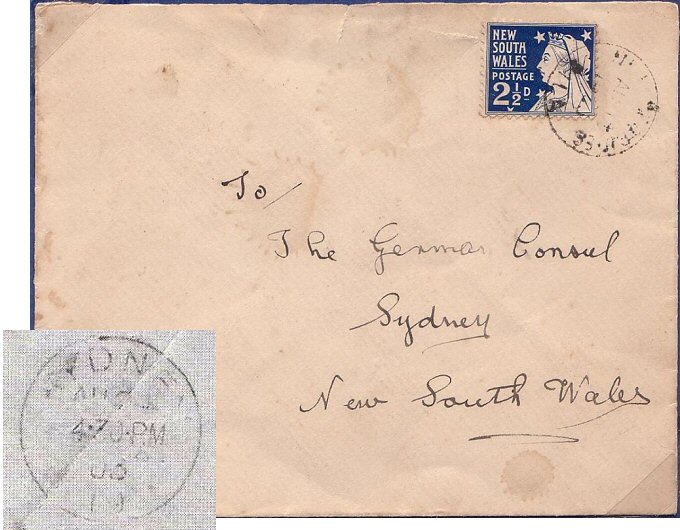 NEW
SOUTH
WALES
POSTAGE
2½D
To/
The German Consul
Sydney
New South Wales
4·30·PM